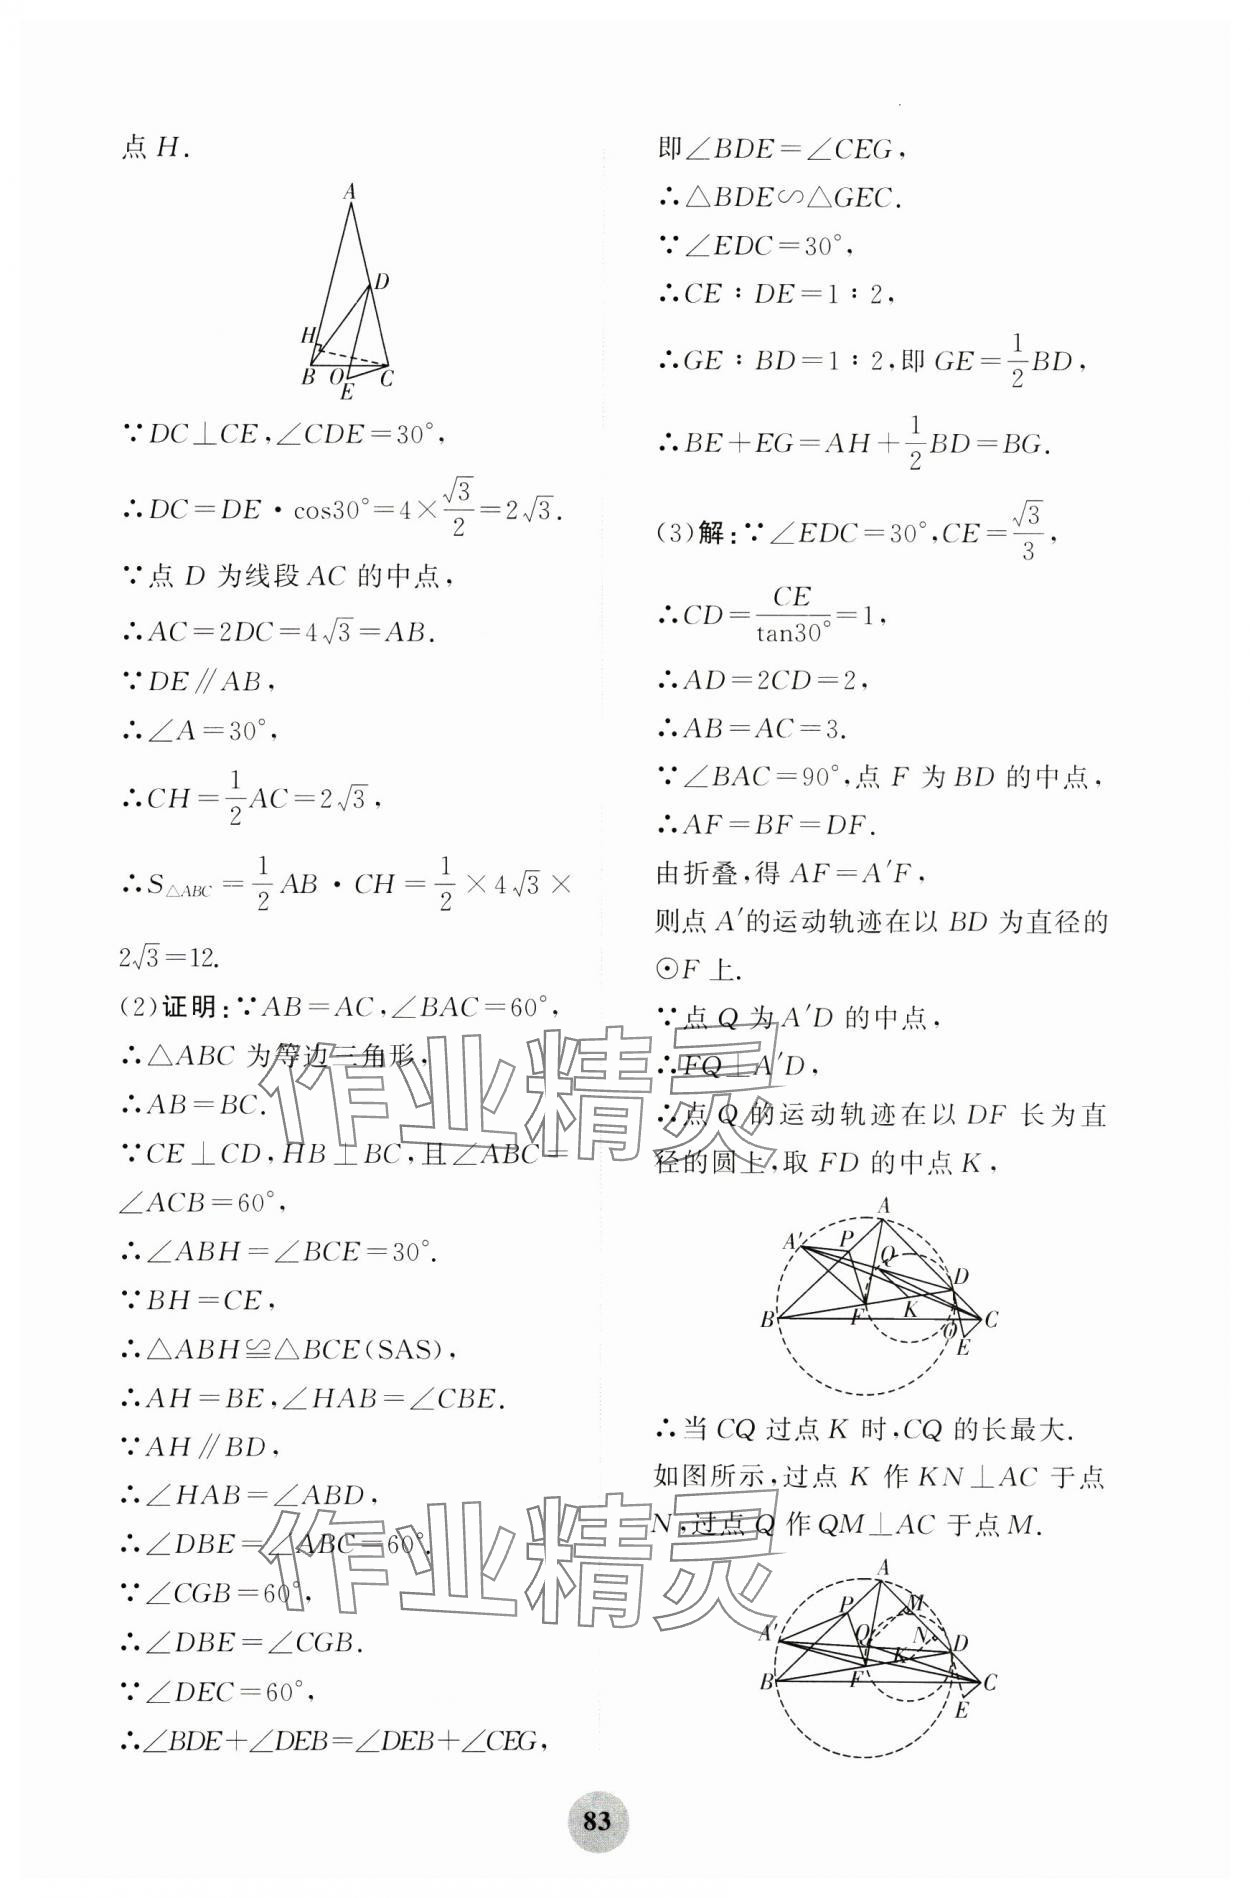 点 H.
A
D
H
B O C
E
∵DC⊥CE,∠CDE=30°,
∴DC=DE·cos30°=4×√3/2=2√3.
∵点 D 为线段 AC 的中点,
∴AC=2DC=4√3=AB.
∵DE∥AB,
∴∠A=30°,
∴CH=1/2AC=2√3,
∴S△ABC=1/2AB·CH=1/2×4√3×
2√3=12.
(2)证明:∵AB=AC,∠BAC=60°,
∴△ABC 为等边三角形,
∴AB=BC.
∵CE⊥CD,HB⊥BC,且∠ABC=
∠ACB=60°,
∴∠ABH=∠BCE=30°.
∵BH=CE,
∴△ABH≌△BCE(SAS),
∴AH=BE,∠HAB=∠CBE.
∵AH∥BD,
∴∠HAB=∠ABD,
∴∠DBE=∠ABC=60°.
∵∠CGB=60°,
∴∠DBE=∠CGB.
∵∠DEC=60°,
∴∠BDE+∠DEB=∠DEB+∠CEG,
即∠BDE=∠CEG,
∴△BDE∽△GEC.
∵∠EDC=30°,
∴CE:DE=1:2,
∴GE:BD=1:2,即 GE=1/2BD,
∴BE+EG=AH+1/2BD=BG.
(3)解:∵∠EDC=30°,CE=√3/3,
∴CD=CE/tan30°=1,
∴AD=2CD=2,
∴AB=AC=3.
∵∠BAC=90°,点 F 为 BD 的中点,
∴AF=BF=DF.
由折叠,得 AF=A′F,
则点 A′的运动轨迹在以 BD 为直径的
⊙F 上.
∵点 Q 为 A′D 的中点,
∴FQ⊥A′D,
∴点 Q 的运动轨迹在以 DF 长为直
径的圆上,取 FD 的中点 K,
A
A′ P Q
D
B F K C
O E
∴当 CQ 过点 K 时,CQ 的长最大.
如图所示,过点 K 作 KN⊥AC 于点
N,过点 Q 作 QM⊥AC 于点 M.
A
P M
A′ Q N D
K
B F C
E
作业精灵
作业精灵
83